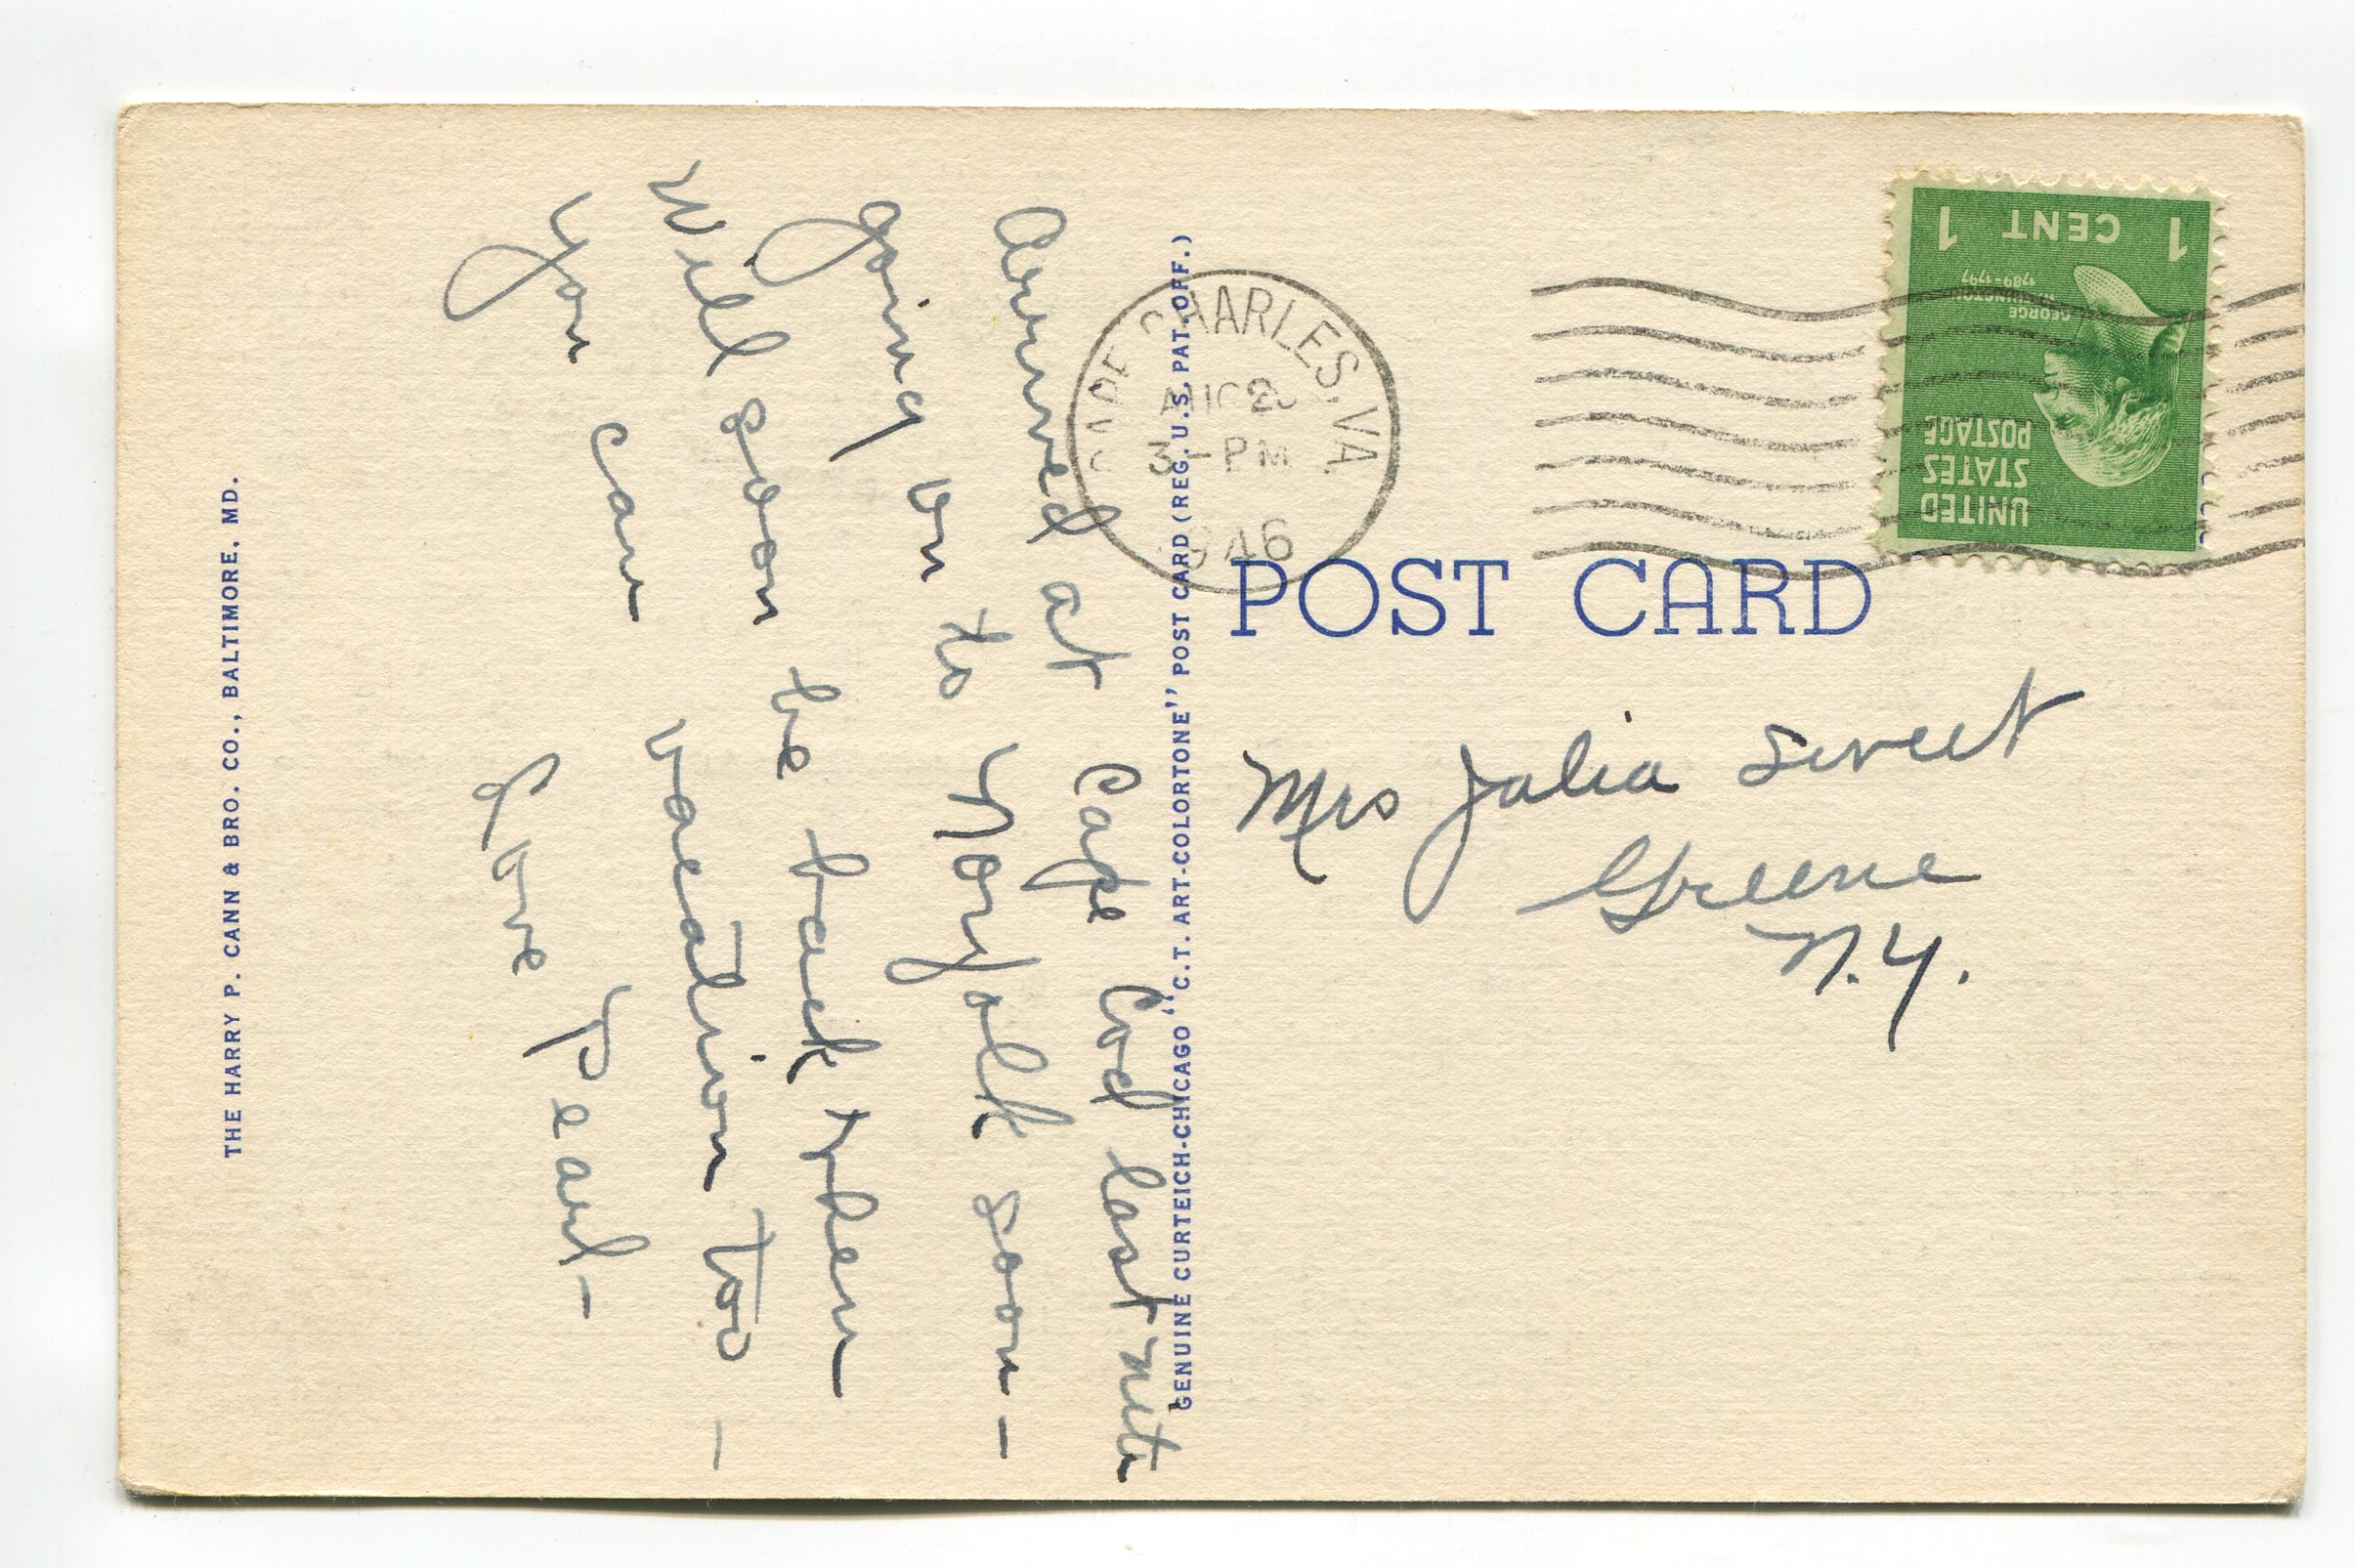 Arrived at Cape Cod last nite
going on to Norfolk soon —
Will soon be back then
you can vacation too —
Love Pearl —
THE HARRY P. CANN & BRO. CO., BALTIMORE, MD.
GENUINE CURTEICH-CHICAGO "C.T. ART-COLORTONE" POST CARD (REG. U.S. PAT. OFF.)
CAPE CHARLES, VA.
3 - PM
1946
1 CENT 1
GEORGE
WASHINGTON
1789-1797
UNITED
STATES
POSTAGE
POST CARD
Mrs Julia Sweet
Greene
N.Y.